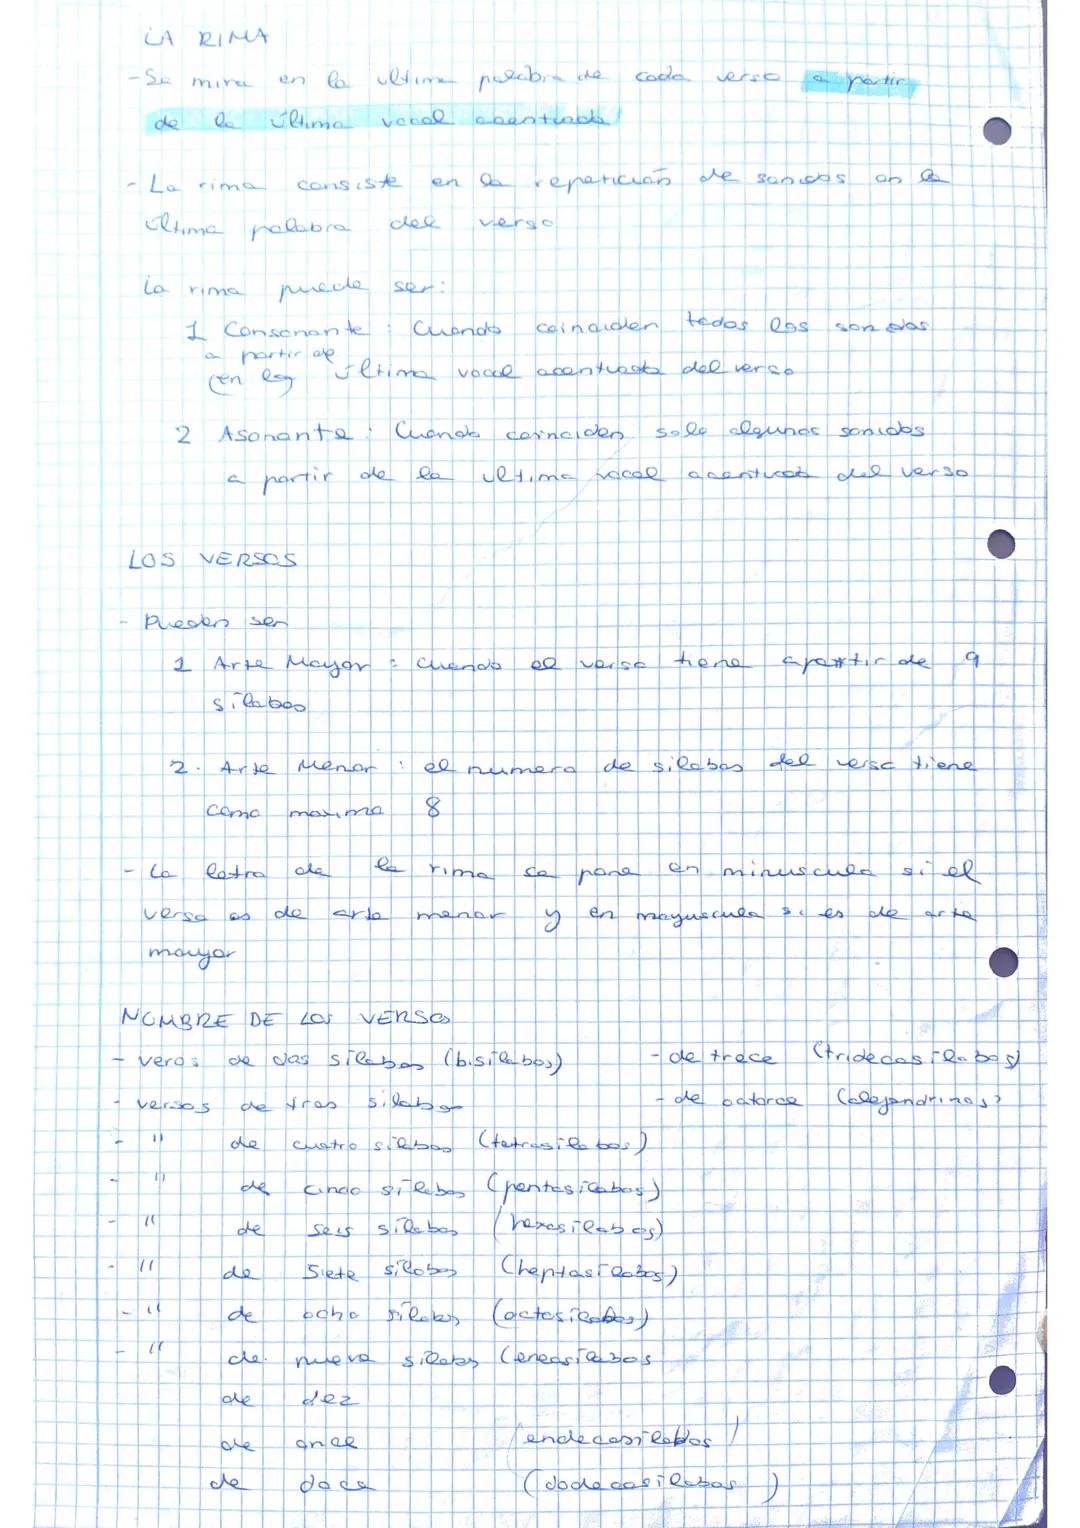 LA RIMA
- Se mira en la ultima palabra de cada verso a partir
de la última vocal acentuada
- La rima consiste en la repetición de sonidos en la
última palabra del verso
La rima puede ser:
1 Consonante : Cuando coinciden todos los sonidos
a partir de
(en la última vocal acentuada del verso
2 Asonante : Cuando coinciden solo algunos sonidos
a partir de la ultima vocal acentuada del verso
LOS VERSOS
- Pueden ser
1 Arte Mayor : cuando el verso tiene apartir de 9
sílabas
2. Arte Menor : el numero de silabas del verso tiene
como maximo 8
- La letra de la rima se pone en minuscula si el
verso es de arte menor y en mayuscula si es de arte
mayor
NOMBRE DE LOS VERSOS
- veros de dos sílabas (bisílabos) - de trece (tridecasílabos)
- versos de tres silabas - de catorce (alejandrinos)
- " de cuatro sílabas (tetrasílabos)
- " de cinco sílabas (pentasílabos)
- " de seis sílabas (hexasílabos)
- " de siete sílabas (heptasílabos)
- " de ocho sílabas (octosílabos)
- " de nueve silabas (eneasílabos
de dez
de once (endecasílabos)
de doce (dodecasílabos)